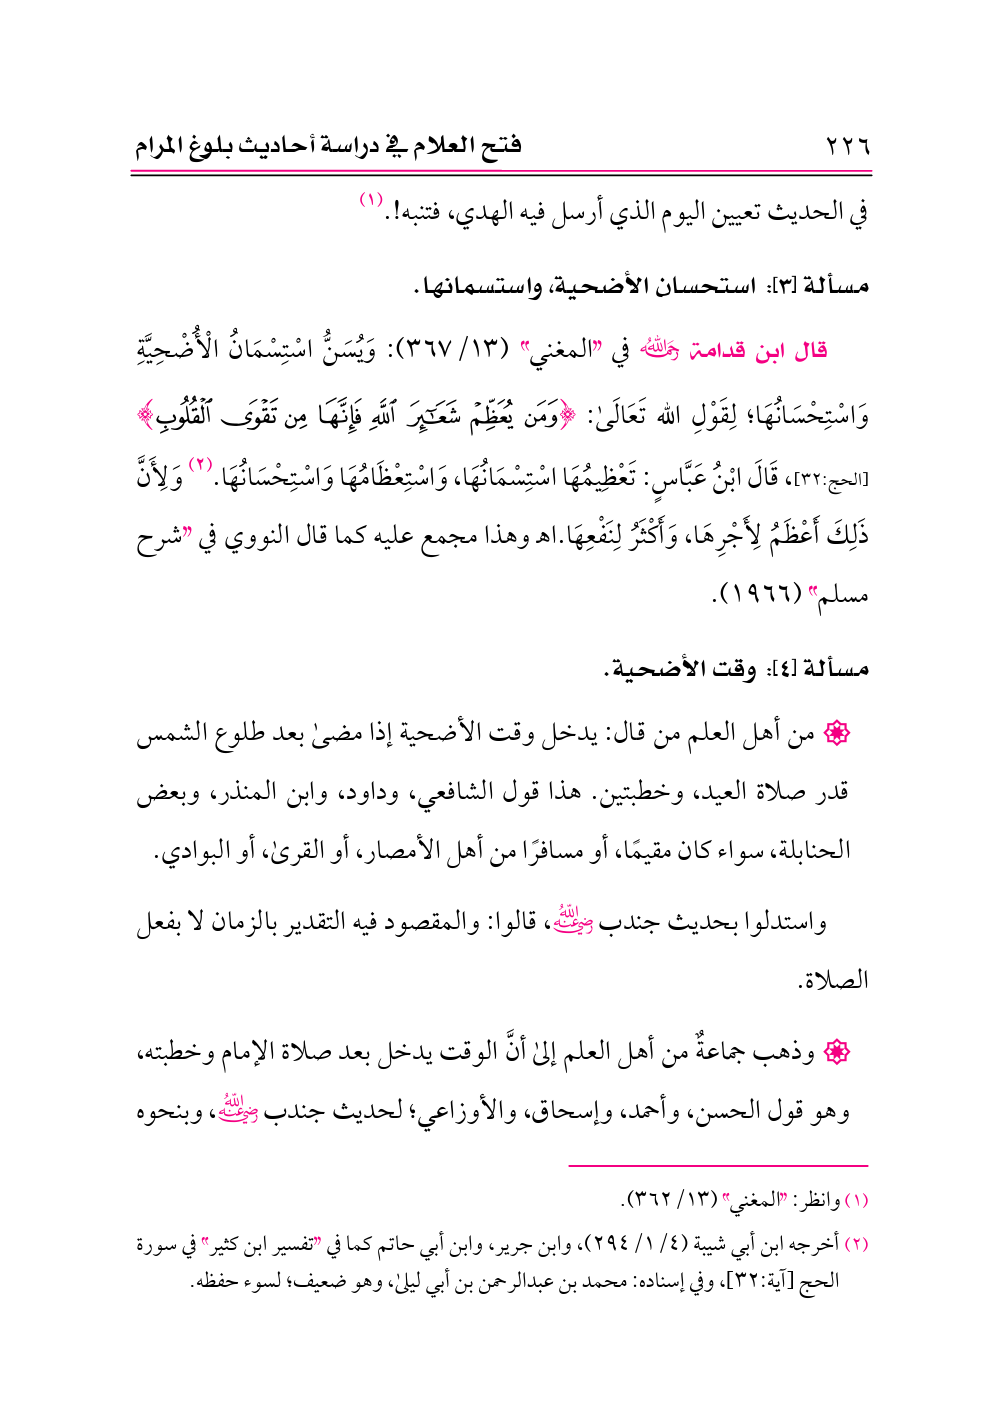 ٢٢٦ فتح العلام في دراسة أحاديث بلوغ المرام
في الحديث تعيين اليوم الذي أرسل فيه الهدي، فتنبه!. (١)
مسألة [٣]: استحسان الأضحية، واستسمانها.
قال ابن قدامة رحمه الله في "المغني" (١٣/ ٣٦٧): وَيُسَنُّ اسْتِسْمَانُ الْأُضْحِيَّةِ
وَاسْتِحْسَانُهَا؛ لِقَوْلِ الله تَعَالَىٰ: ﴿وَمَن يُعَظِّمْ شَعَـٰٓئِرَ ٱللَّهِ فَإِنَّهَا مِن تَقْوَى ٱلْقُلُوبِ﴾
[الحج:٣٢]، قَالَ ابْنُ عَبَّاسٍ: تَعْظِيمُهَا اسْتِسْمَانُهَا، وَاسْتِعْظَامُهَا وَاسْتِحْسَانُهَا. (٢) وَلِأَنَّ
ذَلِكَ أَعْظَمُ لِأَجْرِهَا، وَأَكْثَرُ لِنَفْعِهَا.اهـ وهذا مجمع عليه كما قال النووي في "شرح
مسلم" (١٩٦٦).
مسألة [٤]: وقت الأضحية.
۞ من أهل العلم من قال: يدخل وقت الأضحية إذا مضىٰ بعد طلوع الشمس
قدر صلاة العيد، وخطبتين. هذا قول الشافعي، وداود، وابن المنذر، وبعض
الحنابلة، سواء كان مقيمًا، أو مسافرًا من أهل الأمصار، أو القرىٰ، أو البوادي.
واستدلوا بحديث جندب رضي الله عنه، قالوا: والمقصود فيه التقدير بالزمان لا بفعل
الصلاة.
۞ وذهب جماعةٌ من أهل العلم إلىٰ أنَّ الوقت يدخل بعد صلاة الإمام وخطبته،
وهو قول الحسن، وأحمد، وإسحاق، والأوزاعي؛ لحديث جندب رضي الله عنه، وبنحوه
(١) وانظر: "المغني" (١٣/ ٣٦٢).
(٢) أخرجه ابن أبي شيبة (٤/ ١/ ٢٩٤)، وابن جرير، وابن أبي حاتم كما في "تفسير ابن كثير" في سورة
الحج [آية:٣٢]، وفي إسناده: محمد بن عبدالرحمن بن أبي ليلىٰ، وهو ضعيف؛ لسوء حفظه.